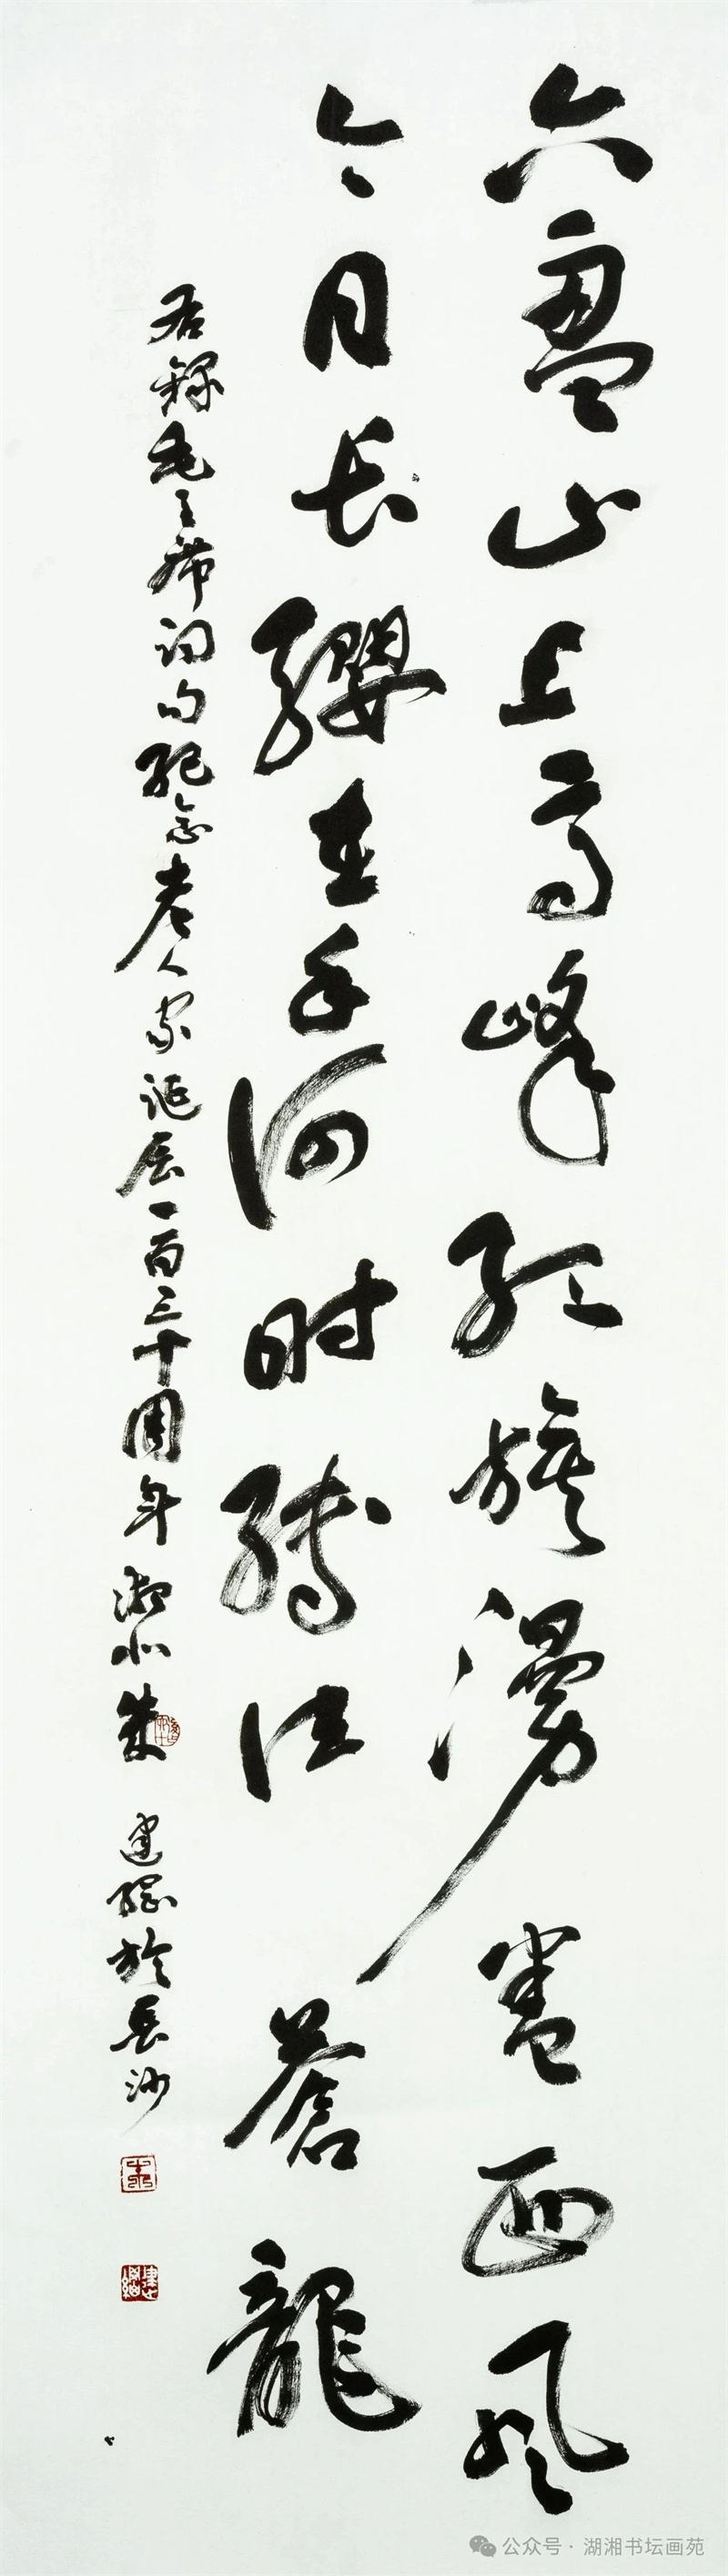 六盘山上高峰红旗漫卷西风
今日长缨在手何时缚住蒼龍
右録毛主席词句纪念老人家诞辰一百三十周年湘北朱建纲於長沙
公众号·湖湘书坛画苑